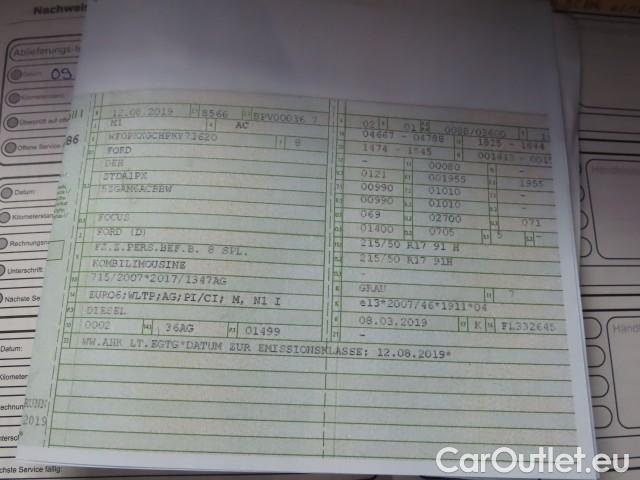 Nachweis
Ablieferungs-I
Datum 09
Offene Service
86
Datum:
Kilometerstand
Rechnungsn
Unterschrift
Nächste Se
Datum:
Kilometer
chste Service fällig:
12.08.2019 8566 BPV00036 7
M1 AC
8
FORD
DEH
5ZGAM6ACBBW
FOCUS
FORD (D)
FZ.Z.PERS.BEF.B. 8 SPL.
KOMBILIMOUSINE
715/2007*2017/1347AG
EURO6;WLTP;AG;PI/CI; M, N1 I
DIESEL
0002 36AG 01499
WW.AHK LT.EGTG*DATUM ZUR EMISSIONSKLASSE: 12.08.2019*
02 01 0088/03600
04667 - 04788 1825 - 1844
1474 - 1545
- 00080 -
0121 001955 1955
00990 01010 -
00990 01010 -
069 02700 071
01400 0705 5 -
215/50 R17 91H
215/50 R17 91H
-
GRAU 7
e13*2007/46*1911*04
08.03.2019 K FL332645
-
2019
CarOutlet.eu